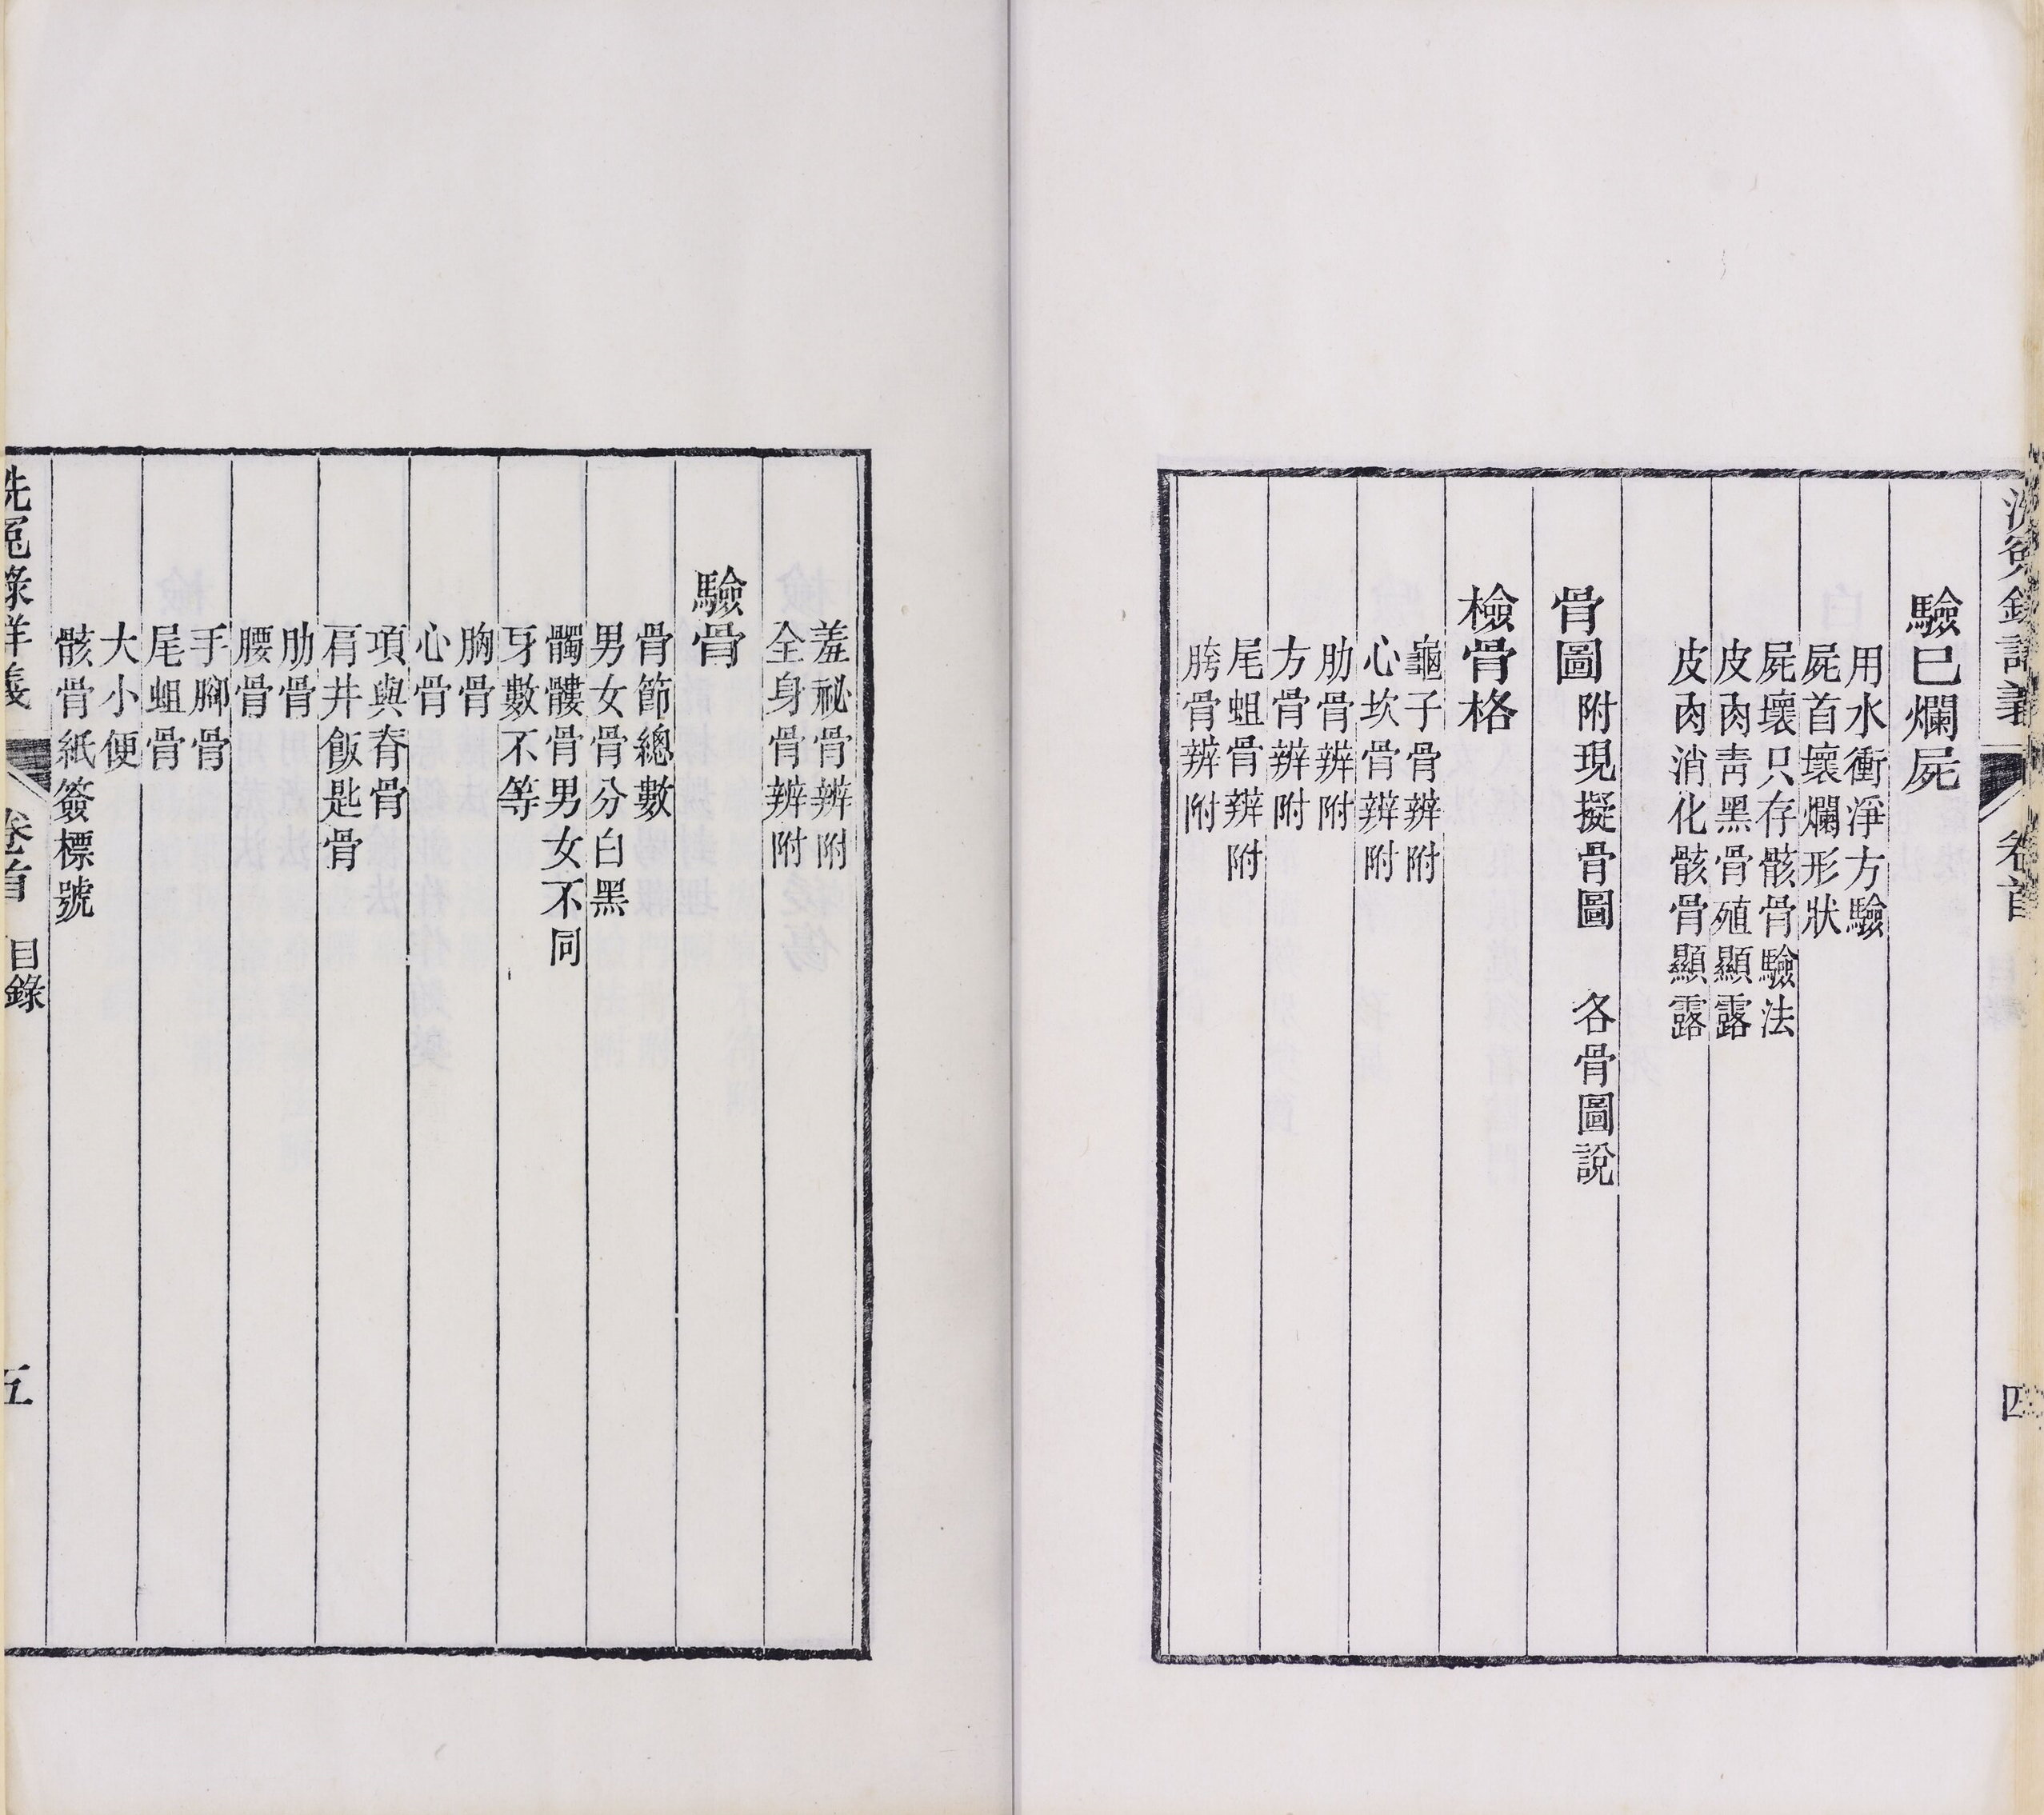 洗冤錄詳義 卷首 四
驗已爛屍
用水衝淨方驗
屍首壞爛形狀
屍壞只存骸骨驗法
皮肉青黑骨殖顯露
皮肉消化骸骨顯露
骨圖 附現擬骨圖 各骨圖說
檢骨格
龜子骨辨附
心坎骨辨附
肋骨辨附
方骨辨附
尾蛆骨辨附
胯骨辨附
羞祕骨辨附
全身骨辨附
驗骨
骨節總數
男女骨分白黑
髑髏骨男女不同
牙數不等
胸骨
心骨
項與脊骨
肩井飯匙骨
肋骨
腰骨
手腳骨
尾蛆骨
大小便
骸骨紙簽標號
洗冤錄詳義 卷首 目錄 五